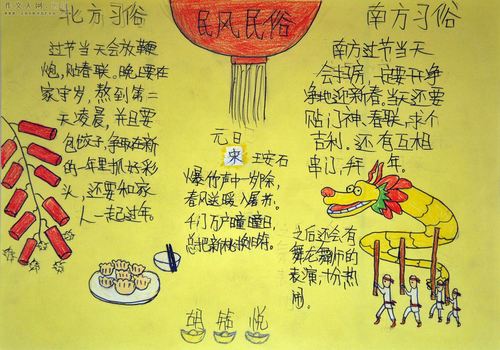 北方习俗
民风民俗
南方习俗
过节当天会放鞭
炮,贴春联。晚上要在
家守岁,熬到第二
天凌晨,并且要
包饺子,争取在新
的一年里抓好彩
头,还要和家
人一起过年。
元日
宋 王安石
爆竹声中一岁除,
春风送暖入屠苏。
千门万户曈曈日,
总把新桃换旧符。
南方过节当天
会扫房,一定要干净
净地迎新春。当天还要
贴门神、春联,求个
吉利。还有互相
串门,拜年。
之后还会有
舞龙舞狮的
表演,十分热
闹。
胡 悦